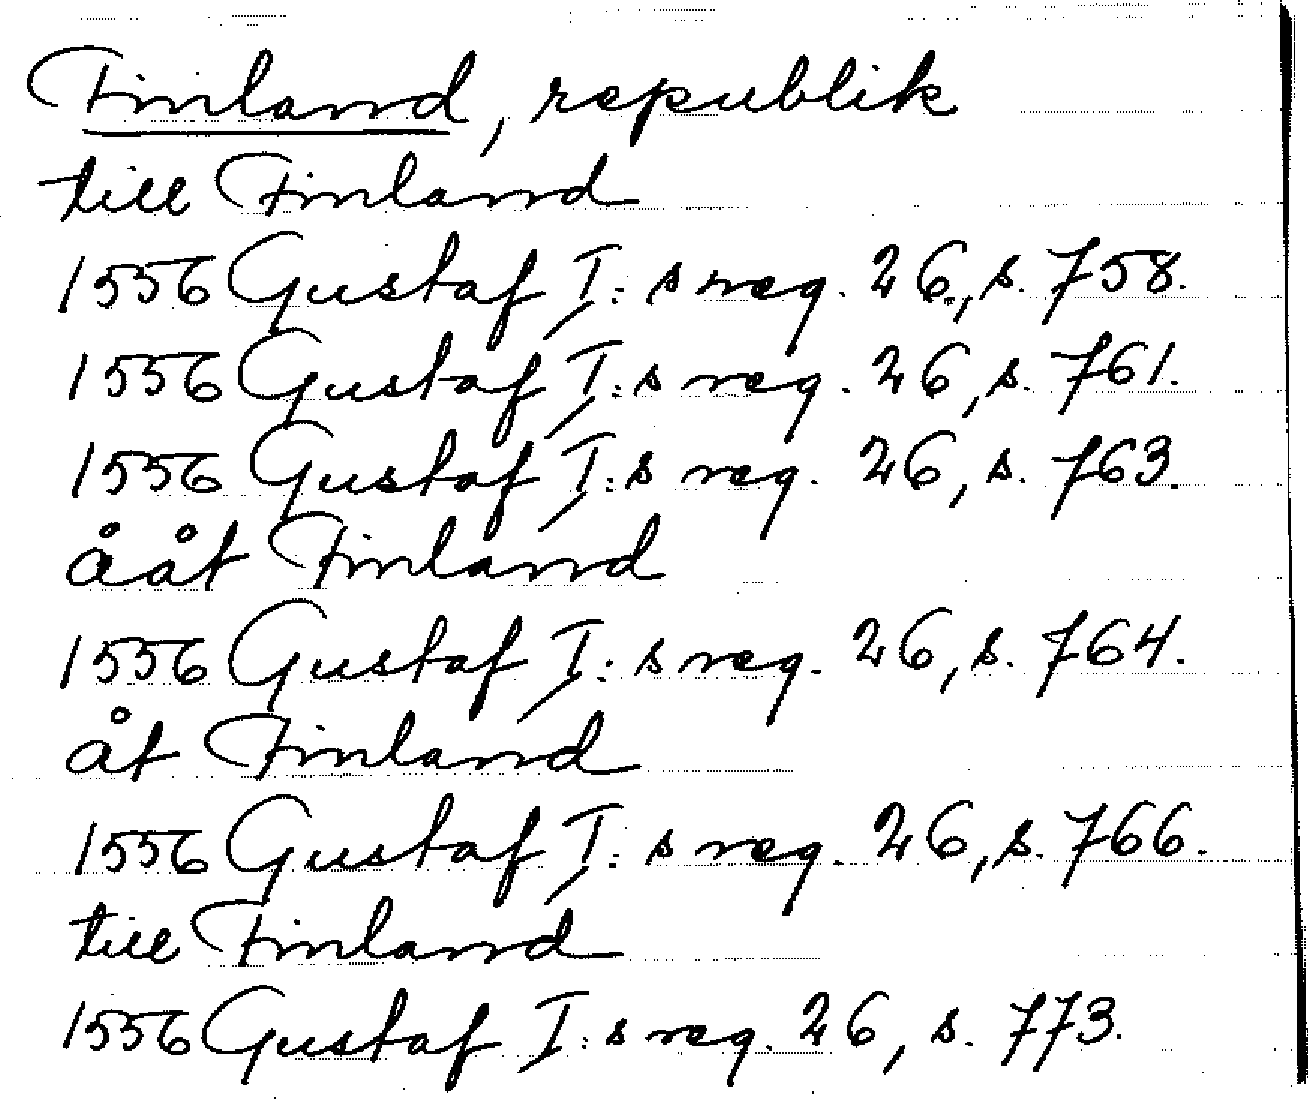 Finland, republik
till Finland
1556 Gustaf I:s reg. 26, s. 758.
1556 Gustaf I:s reg. 26, s. 761.
1556 Gustaf I:s reg. 26, s. 763.
ååt Finland
1556 Gustaf I:s reg. 26, s. 764.
åt Finland
1556 Gustaf I:s reg. 26, s. 766.
till Finland
1556 Gustaf I:s reg. 26, s. 773.